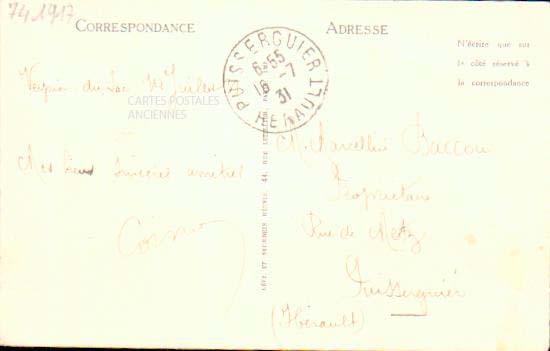 74 1917
CORRESPONDANCE
ADRESSE
PUISSERGUIER
6*55
16 -7
31
HERAULT
N'écrire que sur
le côté réservé à
la correspondance
du Lac Juillet
CARTES POSTALES
ANCIENNES
M. Marcellin Baccou
Mes bien sincères amitiés
Propriétaire
Rue de Metz
Puisserguier
(Hérault)
LÉVY ET NEURDEIN RÉUNIS, 44, RUE LETELLIER, PARIS